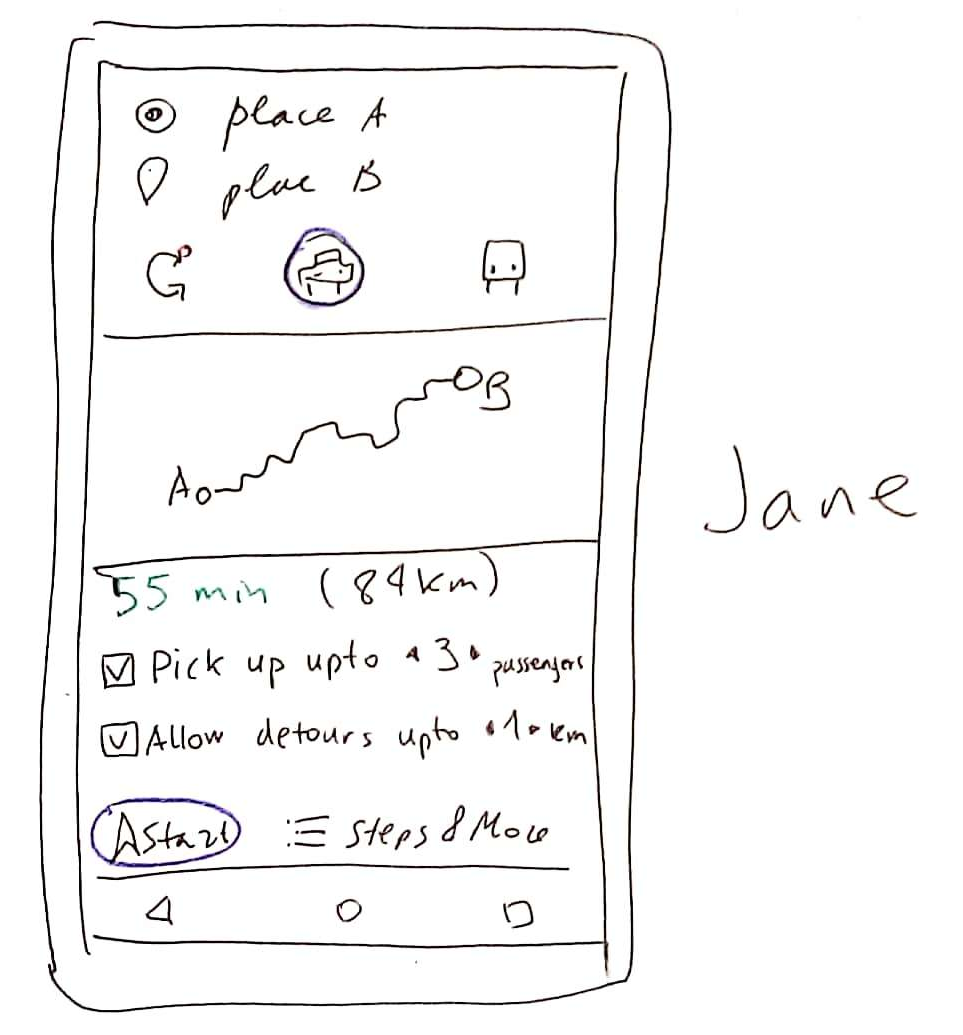 place A
plac B
A B
55 min (84km)
Pick up upto 3 passengers
Allow detours upto 1 km
Start Steps & More
Jane